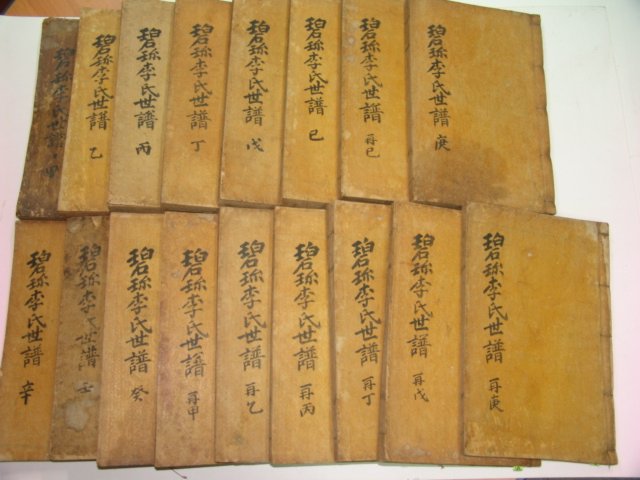 碧珎李氏世譜 甲
碧珎李氏世譜 乙
碧珎李氏世譜 丙
碧珎李氏世譜 丁
碧珎李氏世譜 戊
碧珎李氏世譜 巳
碧珎李氏世譜 再巳
碧珎李氏世譜 庚
碧珎李氏世譜 辛
碧珎李氏世譜 壬
碧珎李氏世譜 癸
碧珎李氏世譜 再甲
碧珎李氏世譜 再乙
碧珎李氏世譜 再丙
碧珎李氏世譜 再丁
碧珎李氏世譜 再戊
碧珎李氏世譜 再庚